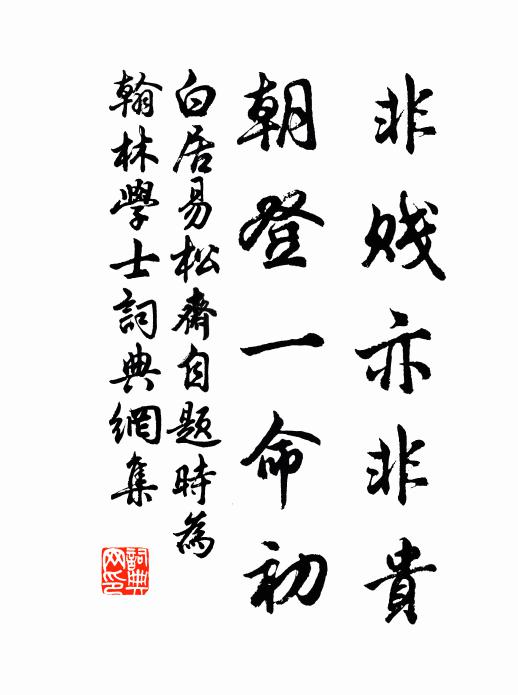 非賤亦非貴
朝登一命初
白居易松齋自題時為
翰林學士詞典網集
詞典网印